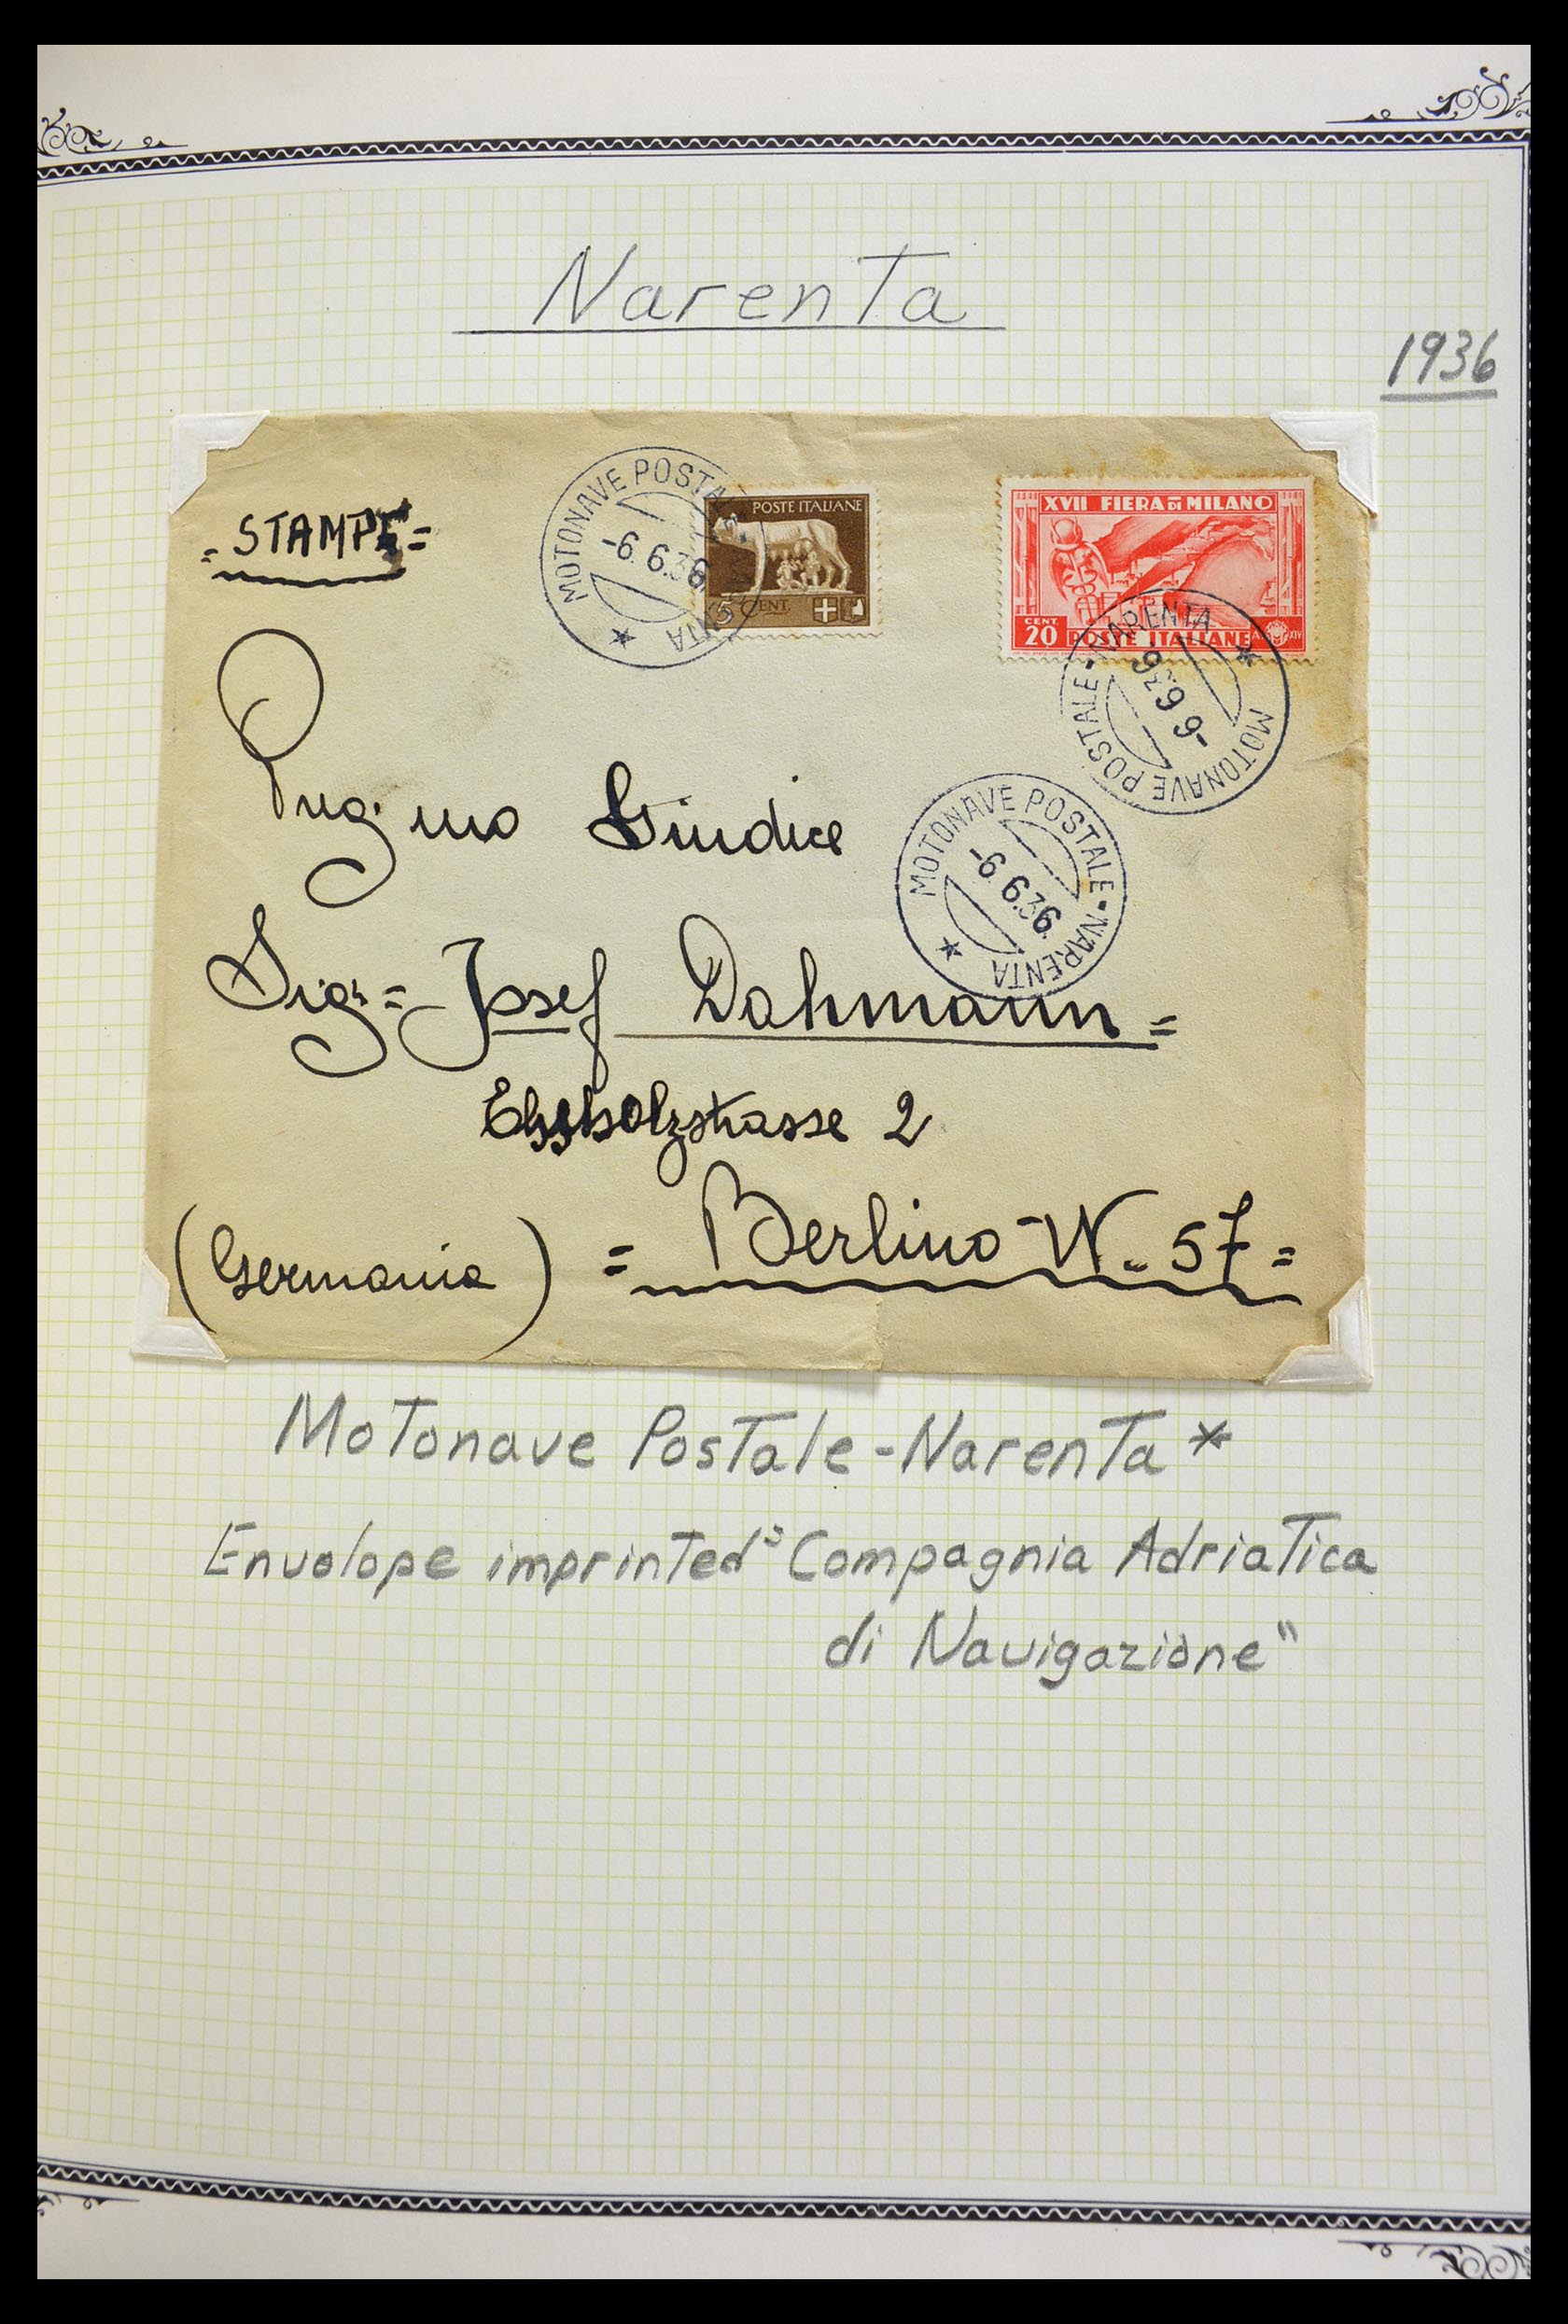 Narenta
1936
=STAMPE=
MOTONAVE POSTA
NTA
-6. 6.36
POSTE ITALIANE
5 CENT.
XVII FIERA DI MILANO
CENT. 20 POSTE ITALIANE A. XIV
MOTONAVE POSTALE • NARENTA ★
-6 6.36
MOTONAVE POSTALE • NARENTA ★
-6. 6.36
Giudice
Sigr= Josef Dahmann=
2
(Germania) = Berlino-W. 57=
Motonave Postale-Narenta*
Envolope imprinted "Compagnia Adriatica
di Navigazione"